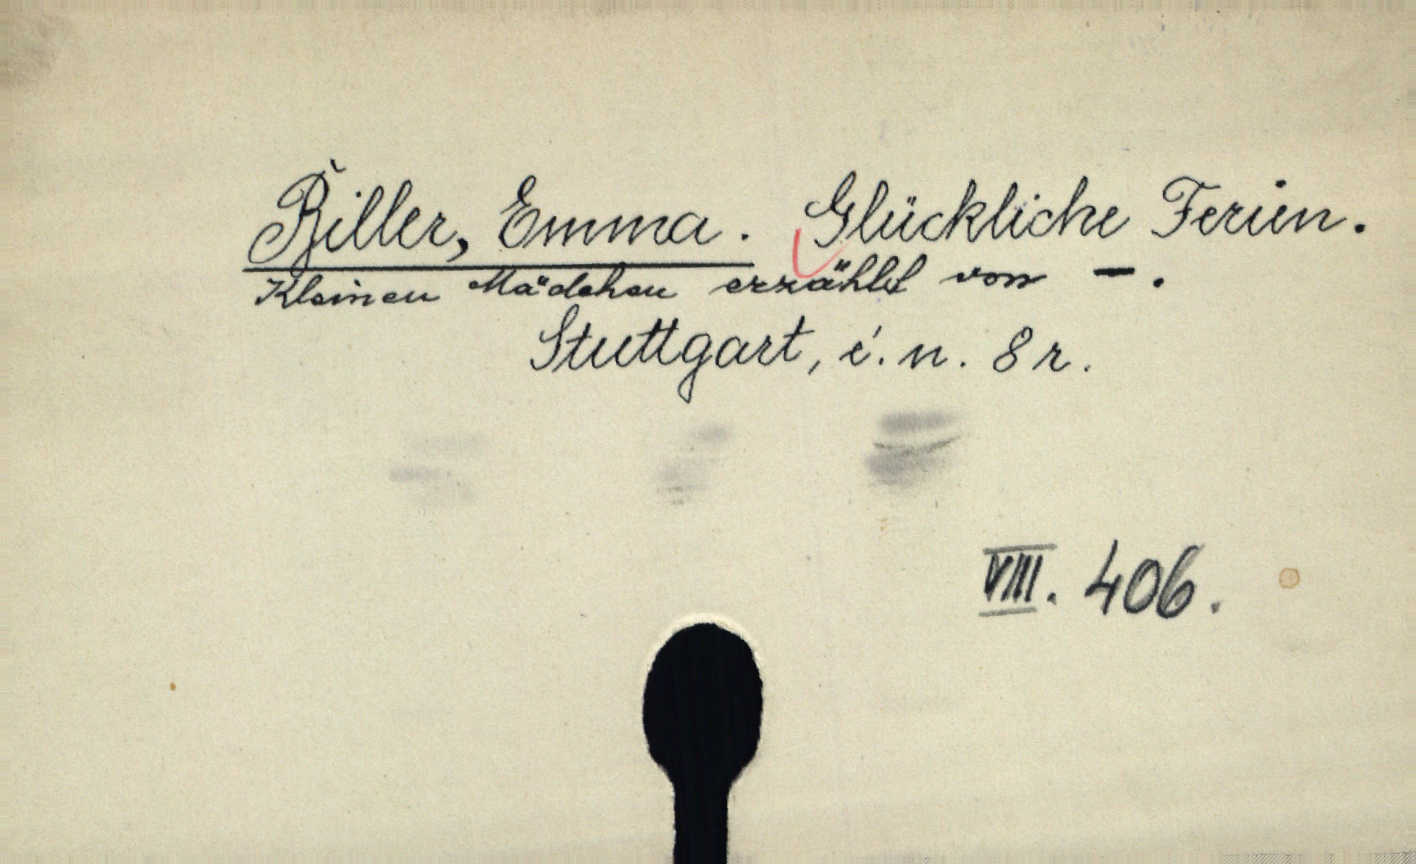 Biller, Emma. Glückliche Ferien.
Kleinen Mädchen erzählt von –.
Stuttgart, é. n. 8 r.
VIII. 406.